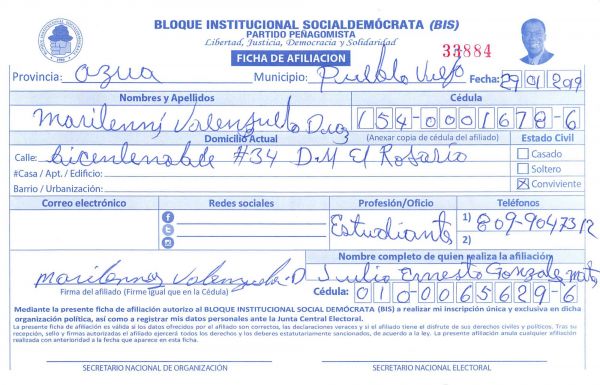 BLOQUE INSTITUCIONAL SOCIALDEMÓCRATA (BIS)
PARTIDO PEÑAGOMISTA
Libertad, Justicia, Democracia y Solidaridad
FICHA DE AFILIACION
33884
Provincia: Azua Municipio: Pueblo Viejo Fecha: 29/01/2019
Nombres y Apellidos Cédula
Marilenni Valenzuela Diaz 154-0001678-6
Domicilio Actual (Anexar copia de cédula del afiliado) Estado Civil
Calle: #34 D.M El Rosario
Casado
#Casa / Apt. / Edificio: Soltero
Barrio / Urbanización: Conviviente
Correo electrónico Redes sociales Profesión/Oficio Teléfonos
Estudiante 1) 809-9047312
2)
Nombre completo de quien realiza la afiliación
Valenzuela D Julio Ernesto Gonzalez
Firma del afiliado (Firme igual que en la Cédula) Cédula: 010-0065629-6
Mediante la presente ficha de afiliación autorizo al BLOQUE INSTITUCIONAL SOCIAL DEMÓCRATA (BIS) a realizar mi inscripción única y exclusiva en dicha
organización política, así como a registrar mis datos personales ante la Junta Central Electoral.
La presente ficha de afiliación es válida si los datos ofrecidos por el afiliado son correctos, las declaraciones veraces y si el afiliado tiene el disfrute de sus derechos civiles y políticos. Tras su
recepción, sello y firmas autorizadas el afiliado ejercerá todos los derechos y los deberes estatutariamente sancionados, de acuerdo a la ley. La presente afiliación anula cualquier afiliación
realizada con anterioridad a la fecha que aparece en esta ficha.
SECRETARIO NACIONAL DE ORGANIZACIÓN SECRETARIO NACIONAL ELECTORAL